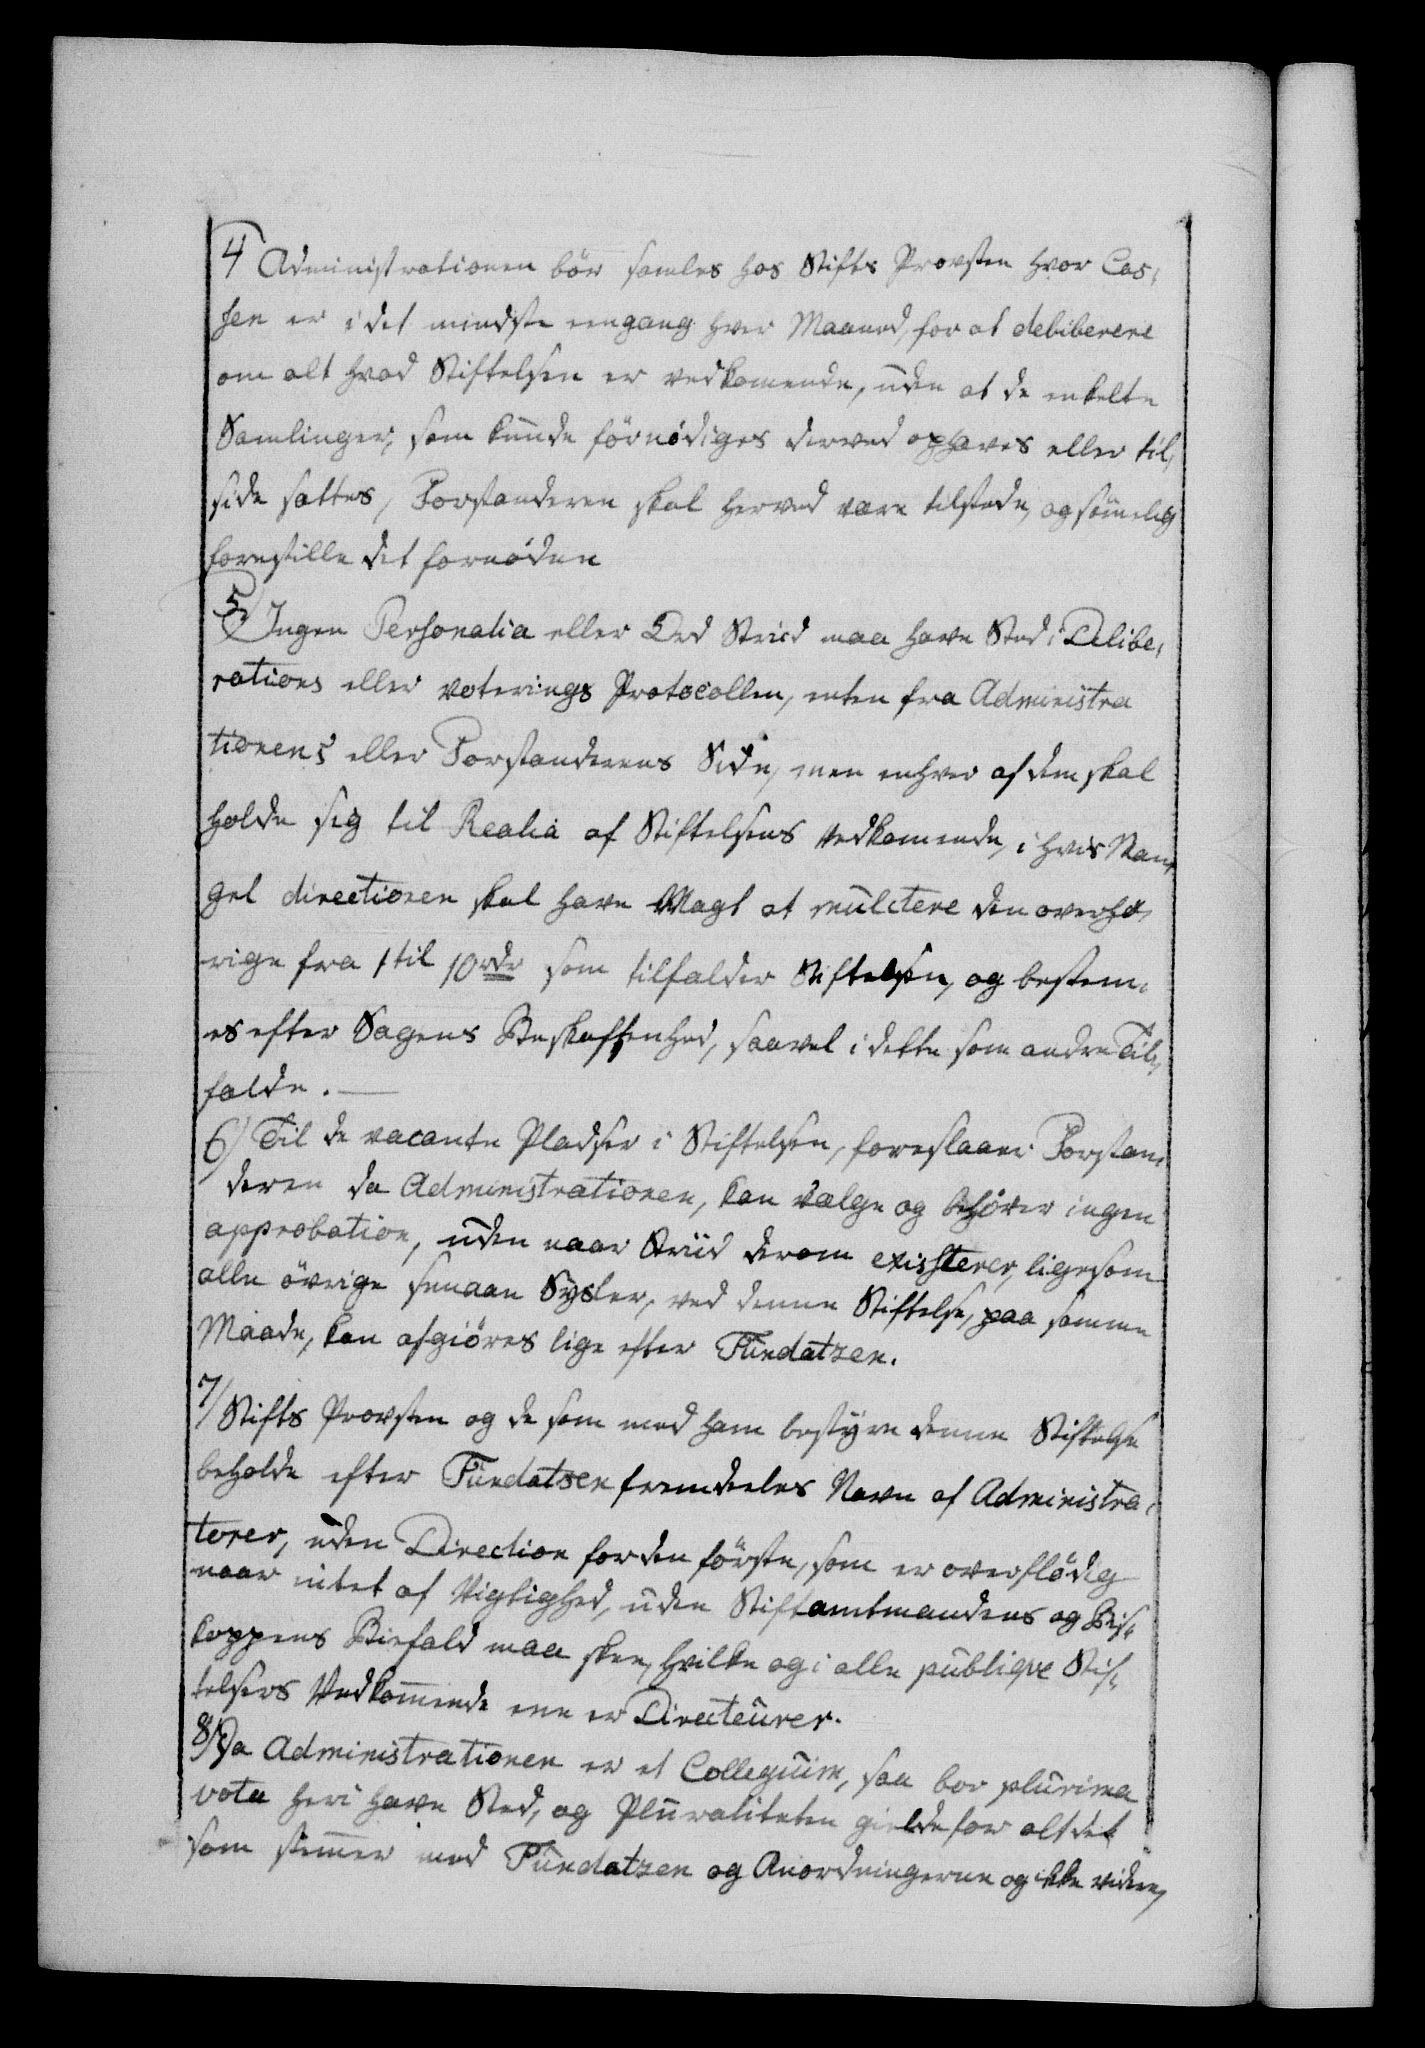 4 Administrationen bör samles hos Stifts Provsten hvor Cas,
sen er i det mindste eengang hver Maaned, for at debiberere
om alt hvad Stiftelsen er vedkomende, uden at de enkelte
Samlinger, som kunde fornödiges derved ophæves eller til,
side sættes, Forstanderen skal herved være tilstede, og sömelig
forestille det fornödne
5) Ingen Personalia eller Ord Striid maa have Sted i Delibe,
rations eller voterings Protocollen, enten fra Administra
tionens eller Forstanderens Side, men enhver af dem skal
holde sig til Realia af Stiftelsens Vedkomende, i hvis Man,
gel directionen skal have Magt at mulctere den overhö,
rige fra 1 til 10 rdr som tilfalder Stiftelsen, og bestem,
es efter Sagens Beskaffenhed, saavel i dette som andre Til,
fælde.
6) Til de vacante Pladser i Stiftelsen, foreslaaer Forstan,
deren da Administrationen, kan vælge og behöver ingen
approbation, uden naar Striid derom existerer, ligesom
alle övrige smaae Sysler, ved denne Stiftelse, paa samme
Maade, kan afgiöres lige efter Fundatzen.
7/ Stifts Provsten og de som med ham bestyre denne Stiftelse
beholde efter Fundatzen fremdeeles Navn af Administra,
torer, uden Direction for den förste, som er overflödig
naar intet af Vigtighed, uden Stiftamtmandens og Bis,
koppens Biefald maa skee, hvilke og i alle publiqve Stif,
telsers Vedkommende ene er Directeurer.
8/ Da Administrationen er et Collegium, saa bor plurima
vota heri have Sted, og Pluraliteten gielde for alt det
som stemmer med Fundatzen og Anordningerne og ikke videre,